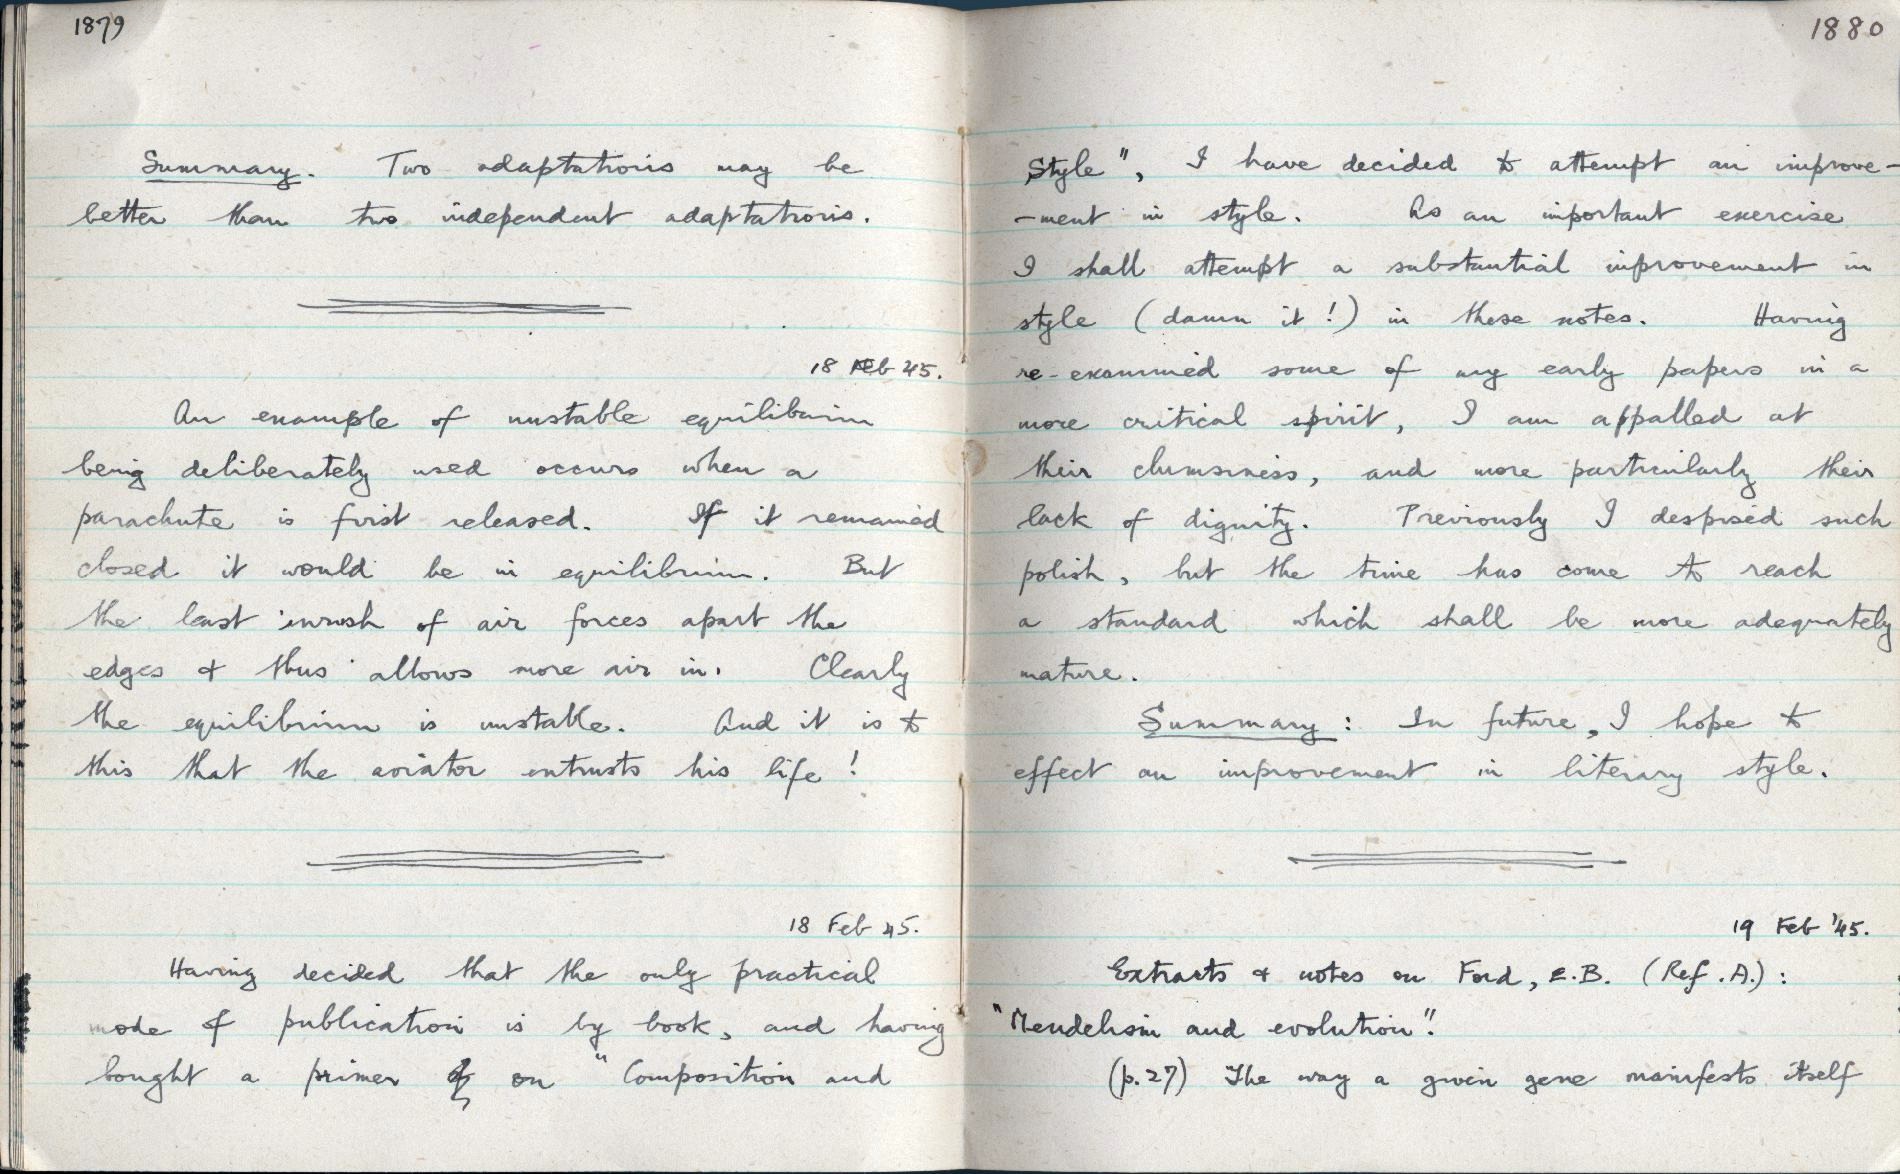 1879
Summary. Two adaptations may be
better than two independent adaptations.
18 Feb 45.
An example of unstable equilibrium
being deliberately used occurs when a
parachute is first released. If it remained
closed it would be in equilibrium. But
the least inrush of air forces apart the
edges & thus allows more air in. Clearly
the equilibrium is unstable. And it is to
this that the aviator entrusts his life!
18 Feb 45.
Having decided that the only practical
mode of publication is by book, and having
bought a primer on "Composition and
1880
Style", I have decided to attempt an improve-
-ment in style. As an important exercise
I shall attempt a substantial improvement in
style (damn it!) in these notes. Having
re-examined some of my early papers in a
more critical spirit, I am appalled at
their clumsiness, and more particularly their
lack of dignity. Previously I despised such
polish, but the time has come to reach
a standard which shall be more adequately
mature.
Summary: In future, I hope to
effect an improvement in literary style.
19 Feb '45.
Extracts & notes on Ford, E.B. (Ref. A.):
"Mendelism and evolution".
(p.27) The way a given gene manifests itself